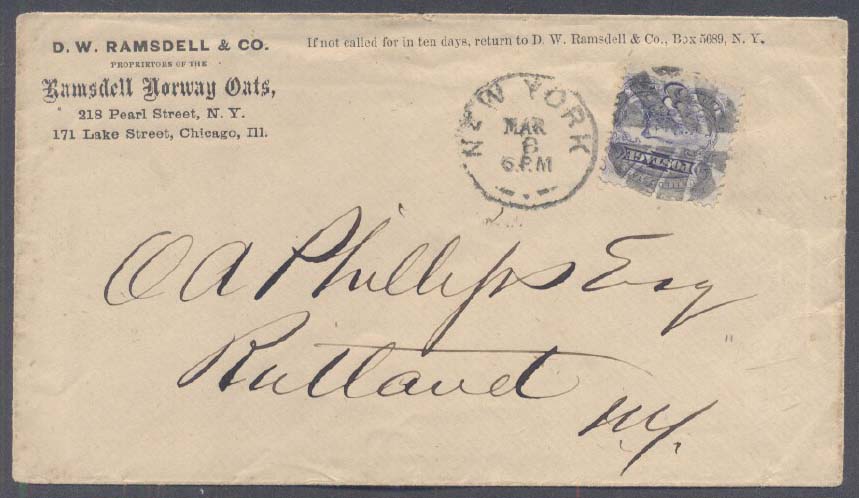 D. W. RAMSDELL & CO.
PROPRIETORS OF THE
Ramsdell Norway Oats,
218 Pearl Street, N. Y.
171 Lake Street, Chicago, Ill.
If not called for in ten days, return to D. W. Ramsdell & Co., Box 5689, N. Y.
NEW YORK
MAR
8
6 P.M
POSTAGE
O A Phillips Esq
Rutland
N.Y.